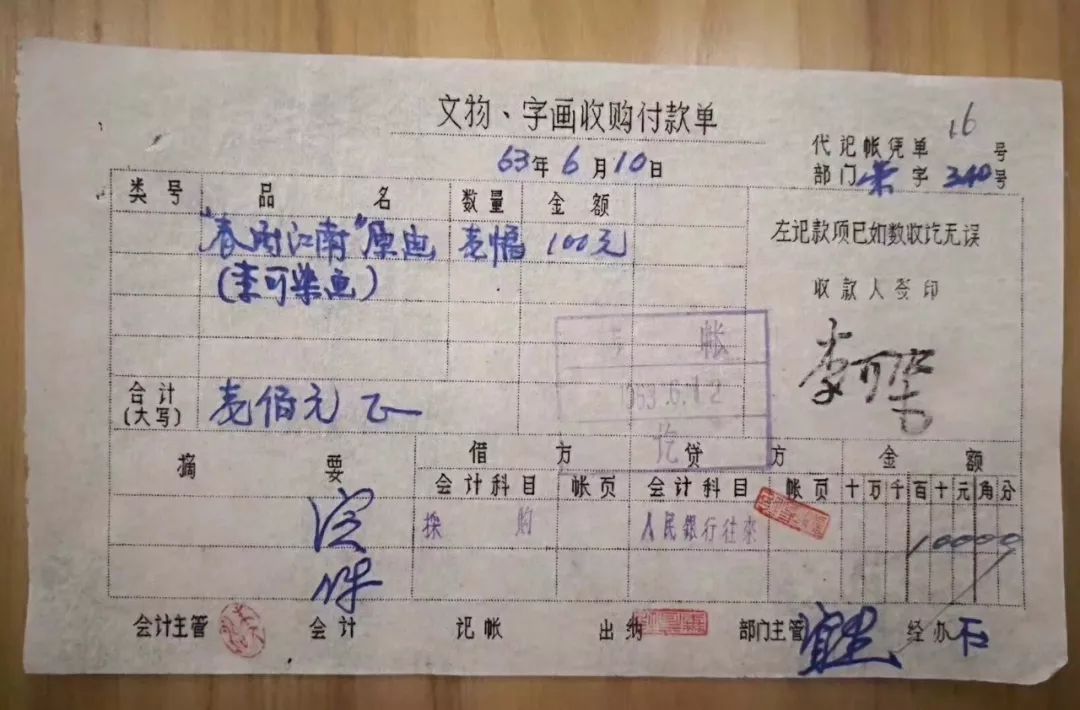 文物、字画收购付款单
16
63年6月10日
代记帐凭单 号
部门荣字340号
类号 品名 数量 金额
"春雨江南"原画 壹幅 100元
(李可染画)
左记款项已如数收讫无误
收款人签印
李可染
帐
1963.6.12
讫
合计
(大写)
壹佰元正
摘要 借方 贷方 金额
会计科目 帐页 会计科目 帐页 十万千百十元角分
採购 人民銀行往來 10000
会计主管 会计 记帐 出纳 部门主管 经办